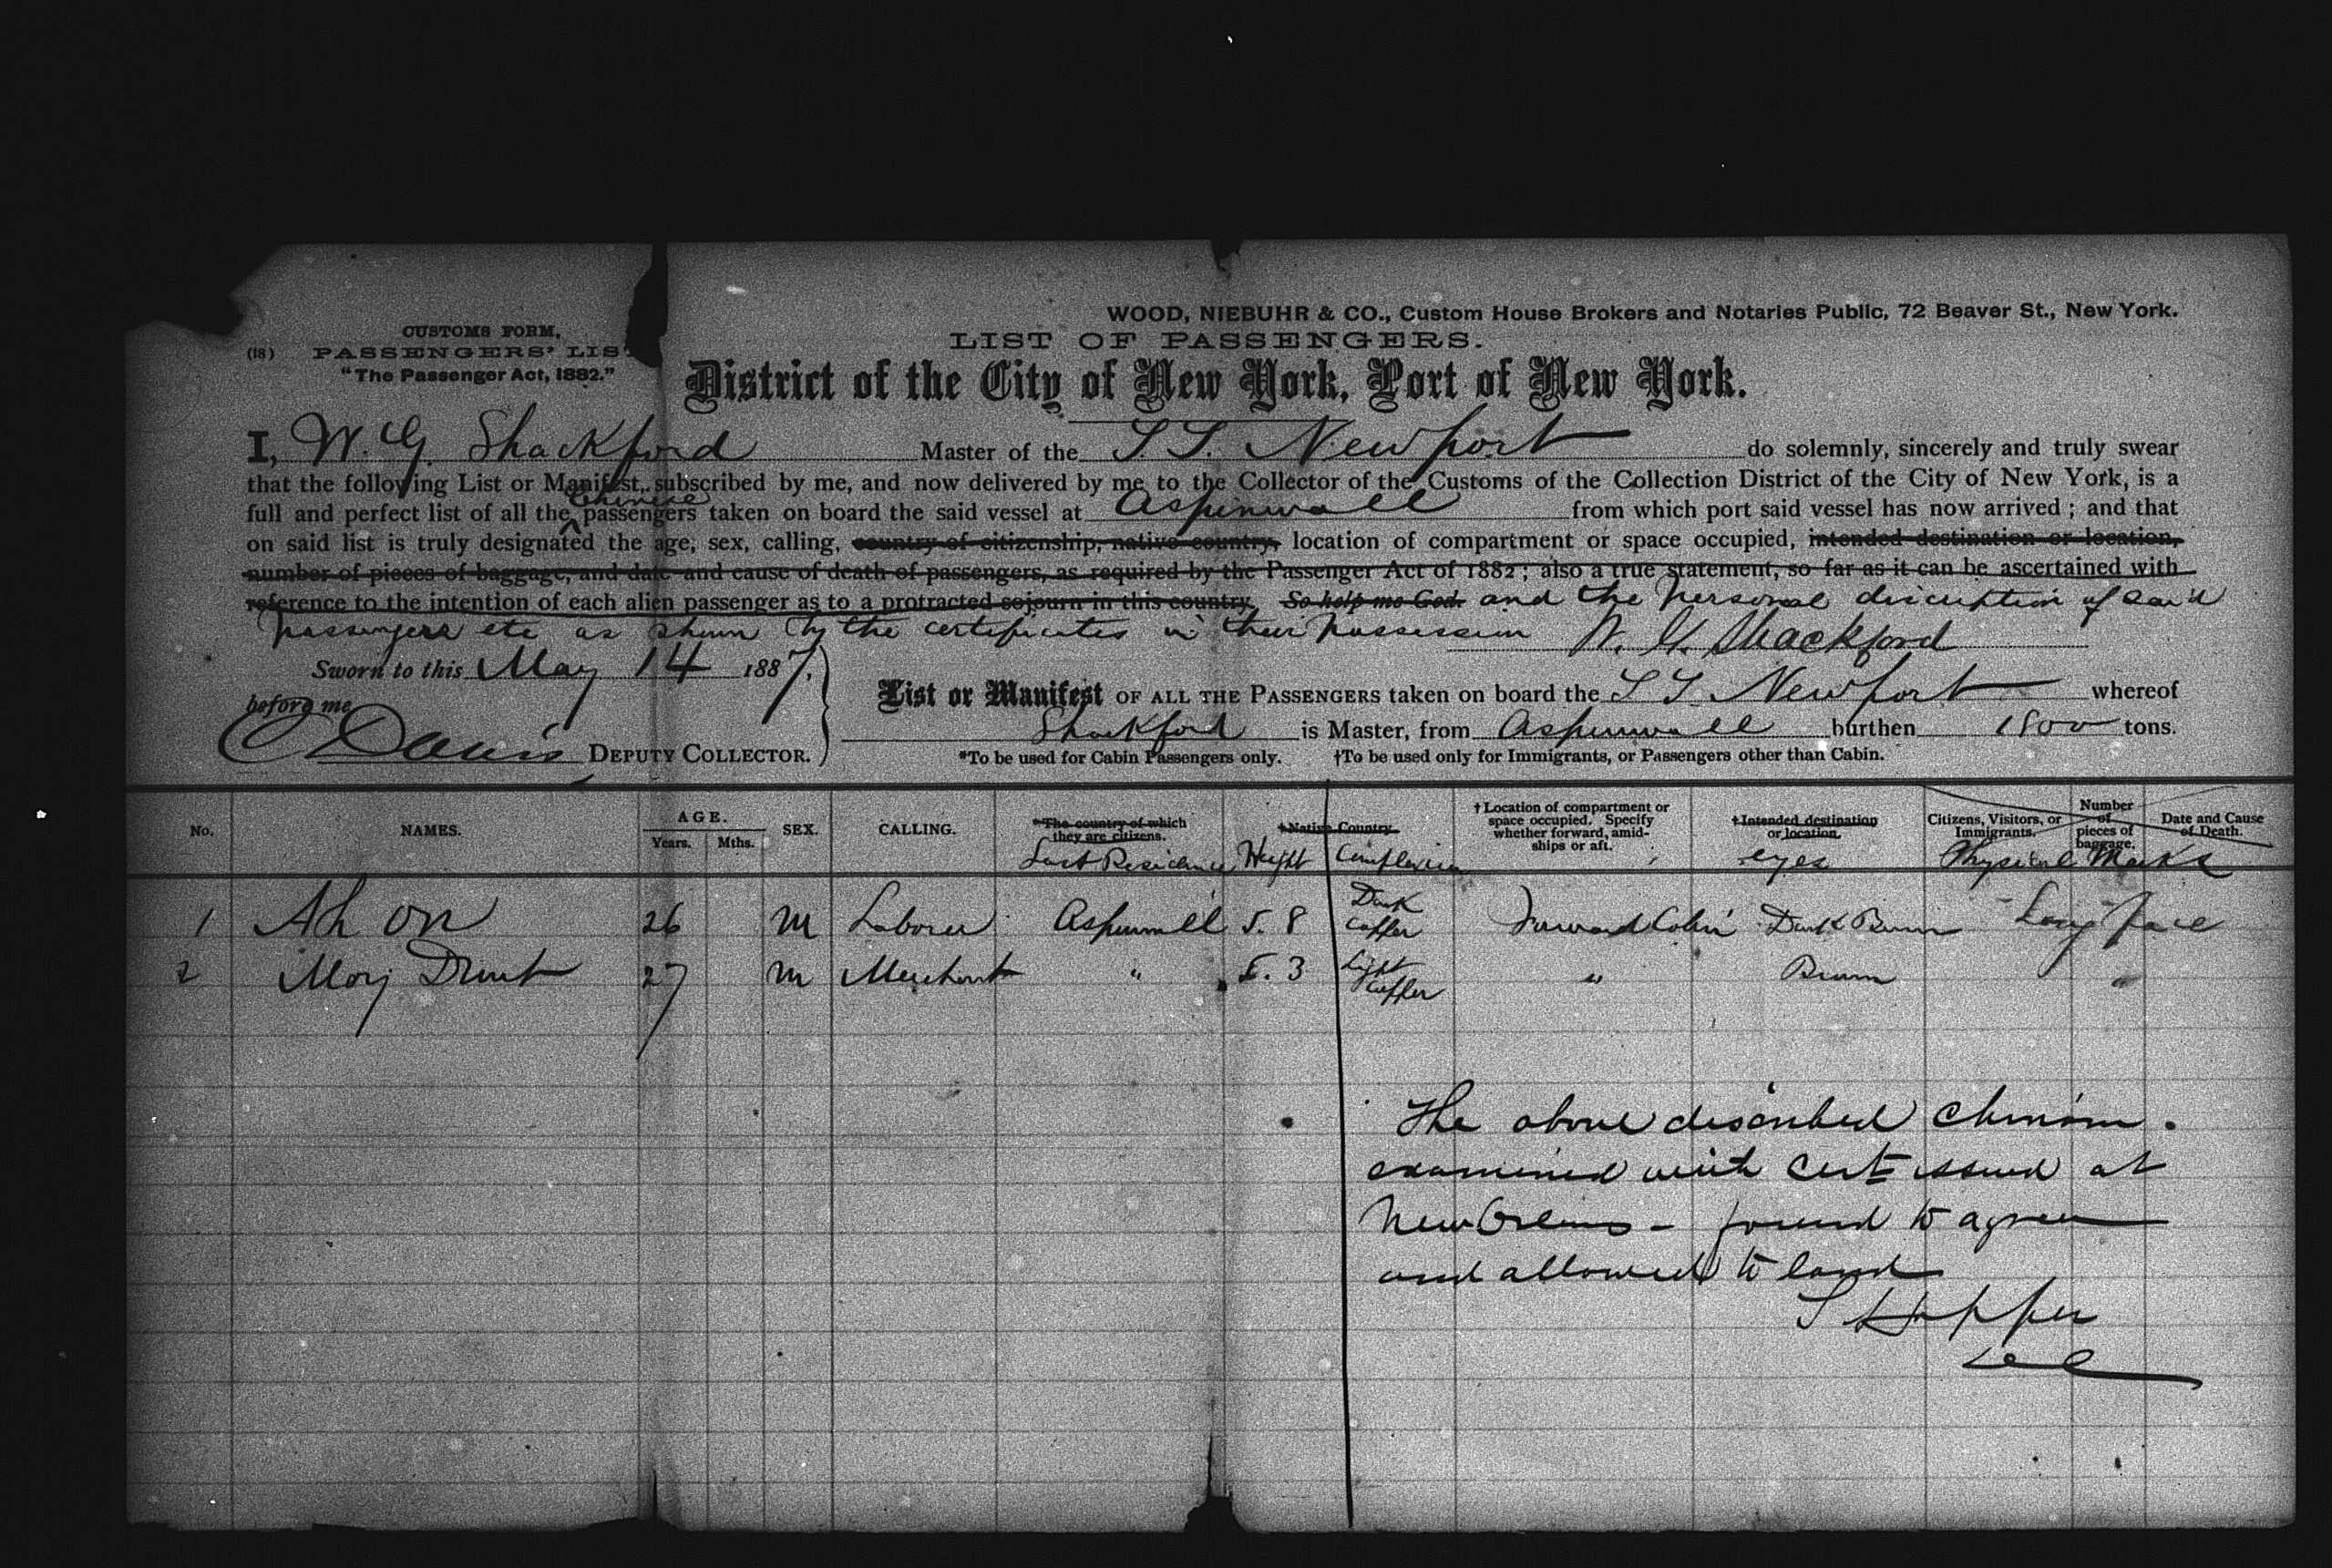 WOOD, NIEBUHR & CO., Custom House Brokers and Notaries Public, 72 Beaver St., New York.
CUSTOMS FORM,
(18) PASSENGERS' LIST
"The Passenger Act, 1882."
LIST OF PASSENGERS.
District of the City of New York, Port of New York.
I, W. G. Shackford Master of the S S. Newport do solemnly, sincerely and truly swear
that the following List or Manifest, subscribed by me, and now delivered by me to the Collector of the Customs of the Collection District of the City of New York, is a
full and perfect list of all the Chinese passengers taken on board the said vessel at Aspinwall from which port said vessel has now arrived; and that
on said list is truly designated the age, sex, calling, country of citizenship, native country, location of compartment or space occupied, intended destination or location,
number of pieces of baggage, and date and cause of death of passengers, as required by the Passenger Act of 1882; also a true statement, so far as it can be ascertained with
reference to the intention of each alien passenger as to a protracted sojourn in this country So help me God. and the personal discription of said
passengers etc as shown by the certificates in their possession W. G. Shackford
Sworn to this May 14 1887,
before me
C Davis DEPUTY COLLECTOR.
List or Manifest OF ALL THE PASSENGERS taken on board the S S Newport whereof
Shackford is Master, from Aspinwall burthen 1800 tons.
*To be used for Cabin Passengers only. †To be used only for Immigrants, or Passengers other than Cabin.
No. NAMES. AGE. Years. Mths. SEX. CALLING. *The country of which they are citizens. Last Residence †Native Country. Height Complexion †Location of compartment or space occupied. Specify whether forward, amidships or aft. †Intended destination or location. eyes Citizens, Visitors, or Immigrants. Number of pieces of baggage. Date and Cause of Death. Physical Marks
1 Ah On 26 M Laborer Aspinwall 5. 8 Dark Copper Forward Cabin Dark Brown Long face
2 27 M Merchant " 5. 3 Light Copper " Brown "
The above described Chinam.
examined with cert issued at
New Orleans - found to agree
and allowed to land